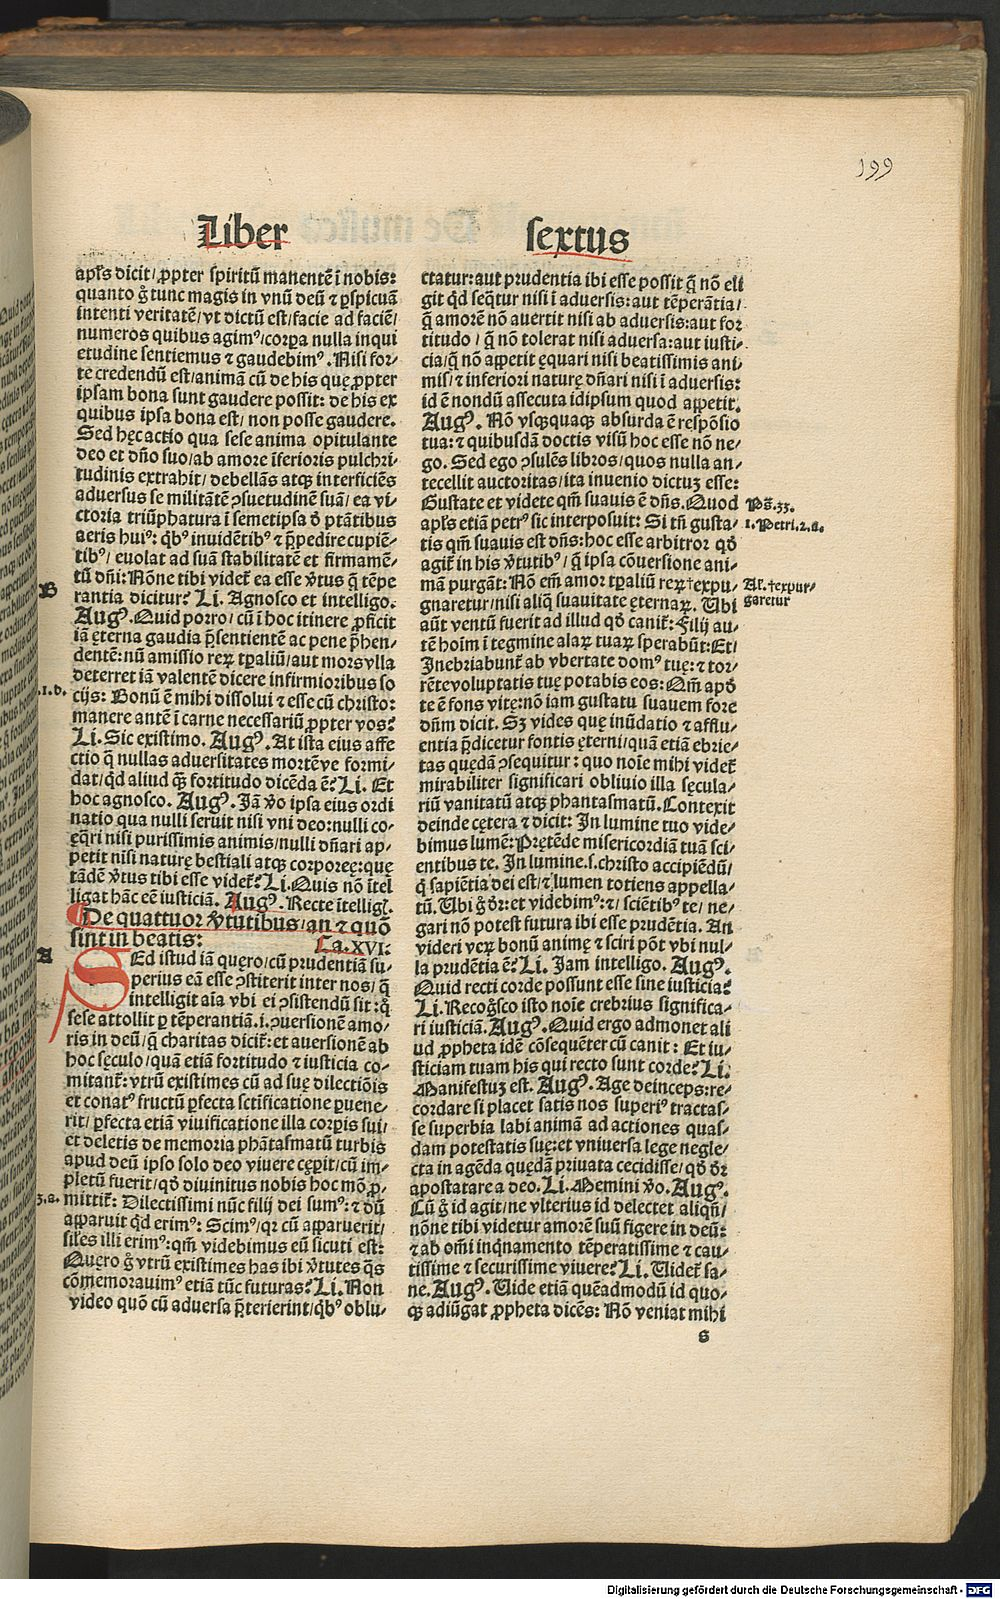 199
Liber sextus
apľs dicit/ ꝓpter spiritū manentē ī nobis:
quanto g̊ tunc magis in vnū deū ⁊ ꝑspicuā
intenti veritatē/ vt dictū est/ facie ad faciē/
numeros quibus agimꝰ/ corꝑa nulla in qui
etudine sentiemus ⁊ gaudebimꝰ. Nisi for⸗
te credendū est/ animā cū de his quę ꝓpter
ipsam bona sunt gaudere possit: de his ex
quibus ipsa bona est/ non posse gaudere.
Sed hęc actio qua sese anima opitulante
deo et dño suo/ ab amore īferioris pulchri⸗
tudinis extrahit/ debellās atqꝫ interficiēs
aduersus se militātē ꝯsuetudinē suā/ ea vi⸗
ctoria triūphatura ī semetipsa ď ptātibus
aeris huiꝰ: qͥbꝰ inuidētibꝰ ⁊ p̄pedire cupiē⸗
tibꝰ/ euolat ad suā stabilitatē et firmamē⸗
tū dñi: Nōne tibi videť ea esse v̓tus q̄ tēpe
B
rantia dicitur? Li. Agnosco et intelligo.
Augꝰ. Quid porro/ cū ī hoc itinere ꝓficit
iā ęterna gaudia p̄sentientē ac pene p̄hen⸗
dentē: nū amissio reꝝ tꝑaliū/ aut mors vlla
deterret iā valentē dicere infirmioribus so
.1.d.
cijs: Bonū ē mihi dissolui ⁊ esse cū christo:
manere autē ī carne necessariū ꝓpter vos?
Li. Sic existimo. Augꝰ. At ista eius affe
ctio q̄ nullas aduersitates mortēve formi⸗
dat/ qd̓ aliud qꝫ fortitudo dicēda ē? Li. Et
hoc agnosco. Augꝰ. Iā v̓o ipsa eius ordi
natio qua nulli seruit nisi vni deo: nulli co⸗
ęq̄ri nisi purissimis animis/ nulli dñari ap⸗
petit nisi naturę bestiali atqꝫ corporeę: quę
tādē v̓tus tibi esse videť? Li. Quis nō ītel
ligat hāc eē iusticiā. Augꝰ. Recte ītelligꝭ.
De quattuor v̓tutibus/ an ⁊ quō
sint in beatis: Ca. XVI:
A
SEd istud iā quęro/ cū prudentiā su⸗
perius eā esse ꝯstiterit inter nos/ q̄
intelligit aīa vbi ei ꝯsistendū sit: q̄
sese attollit ꝑ tēperantiā .i. ꝯuersionē amo⸗
ris in deū/ q̄ charitas diciť: et auersionē ab
hoc sęculo/ quā etiā fortitudo ⁊ iusticia co⸗
mitanť: vtrū existimes cū ad suę dilectiōis
et conatꝰ fructū ꝑfecta sctificatione ꝑuene⸗
rit/ ꝑfecta etiā viuificatione illa corꝑis sui/
et deletis de memoria phātasmatū turbis
apud deū ipso solo deo viuere cęꝑit/ cū im⸗
pletū fuerit/ qď diuinitus nobis hoc mō ꝓ⸗
3.a.
mittiť: Dilectissimi nūc filij dei sumꝰ: ⁊ dū
apparuit qd̓ erimꝰ: Scimꝰ/ qꝛ cū apparuerit/
siľes illi erimꝰ: qm̄ videbimus eū sicuti est:
Quęro g̊ vtrū existimes has ibi v̓tutes q̄s
cōmemorauimꝰ etiā tūc futuras? Li. Non
video quō cū aduersa p̄terierint/ qͥbꝰ oblu⸗
ctatur: aut prudentia ibi esse possit q̄ nō eli
git qd̓ seq̄tur nisi ī aduersis: aut tēperātia/
q̄ amorē nō auertit nisi ab aduersis: aut for
titudo/ q̄ nō tolerat nisi aduersa: aut iusti⸗
cia/ q̄ nō appetit ęquari nisi beatissimis ani
mis/ ⁊ inferiori naturę dñari nisi ī aduersis:
id ē nondū assecuta id ipsum quod appetit.
Augꝰ. Nō vsqꝫquaqꝫ absurda ē respōsio
tua: ⁊ quibusdā doctis visū hoc esse nō ne⸗
go. Sed ego ꝯsulēs libros/ quos nulla an⸗
tecellit auctoritas/ ita inuenio dictuꝫ esse:
Gustate et videte qm̄ suauis ē dñs. Quod
Pš. 33.
apľs etiā petrꝰ sic interposuit: Si tñ gusta⸗
1. Petri. 2. a.
tis qm̄ suauis est dñs: hoc esse arbitror qď
agiť in his v̓tutibꝰ/ q̄ ipsa cōuersione ani⸗
mā purgāt: Nō em̄ amor tꝑaliū reꝝ †expu⸗
Al. †expur⸗
garetur
gnaretur/ nisi aliq̄ suauitate ęternaꝝ. Ubi
aūt ventū fuerit ad illud qď caniť: Filij au⸗
tē hoīm ī tegmine alaꝝ tuaꝝ sperabūt: Et/
Inebriabunť ab vbertate domꝰ tuę: ⁊ tor⸗
rēte voluptatis tuę potabis eos: Qm̄ apď
te ē fons vitę: nō iam gustatu suauem fore
dñm dicit. Sꝫ vides quę inūdatio ⁊ afflu⸗
entia p̄dicetur fontis ęterni/ quā etiā ebrie⸗
tas quędā ꝯsequitur: quo noīe mihi videť
mirabiliter significari obliuio illa sęcula⸗
riū vanitatū atqꝫ phantasmatū. Contexit
deinde cętera ⁊ dicit: In lumine tuo vide⸗
bimus lumē: Prętēde misericordiā tuā sci⸗
entibus te. In lumine .s. christo accipiēdū/
q̄ sapiētia dei est/ ⁊ lumen totiens appella⸗
tū. Ubi g̊ ďr: et videbimꝰ: ⁊/ sciētibꝰ te/ ne⸗
gari nō potest futura ibi esse prudētia. An
videri veꝝ bonū animę ⁊ sciri pōt vbi nul⸗
la prudētia ē? Li. Iam intelligo. Augꝰ.
Quid recti corde possunt esse sine iusticia?
Li. Recog̊sco isto noīe crebrius significa⸗
ri iusticiā. Augꝰ. Quid ergo admonet ali
ud ꝓpheta idē cōsequēter cū canit: Et iu⸗
sticiam tuam his qui recto sunt corde? Li.
Manifestuꝫ est. Augꝰ. Age deinceps: re⸗
cordare si placet satis nos superiꝰ tractas⸗
se superbia labi animā ad actiones quas⸗
dam potestatis suę: et vniuersa lege negle⸗
cta in agēda quędā priuata cecidisse/ qď ďr
apostatare a deo. Li. Memini v̓o. Augꝰ.
Cū g̊ id agit/ ne vlterius id delectet aliqn̄/
nōne tibi videtur amorē suū figere in deū:
⁊ ab om̄i inqͥnamento tēperatissime ⁊ cau⸗
tissime ⁊ securissime viuere? Li. Uideť sa⸗
ne. Augꝰ. Uide etiā quēadmodū id quo⸗
qꝫ adiūgat ꝓpheta dicēs: Nō veniat mihi
s
Digitalisierung gefördert durch die Deutsche Forschungsgemeinschaft - DFG